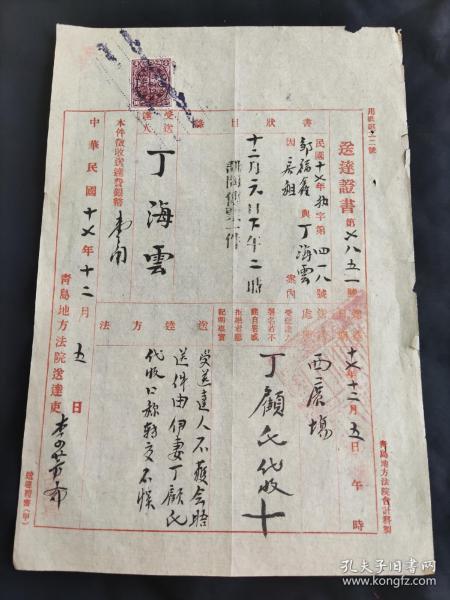 用紙第二二號
送達證書第七八五一號
民國十七年執字第四一八號
鄒福鑫與丁海雲
因房租案內
書狀目錄
十二月六日下午二時
訊問傳票一件
受送達人
丁海雲
本件徵收送達費銀幣
中華民國十七年十二月五日
青島地方法院送達吏
送達
十七年十二月五日午時
處所
西廣場
受送達人署名若不能自署或拒絕者應記明事實
丁顧氏代收十
送達方法
受送達人不獲會晤
送件由伊妻丁顧氏
代收以称轉交不悞
青島地方法院會計科製
送達證書(甲)
孔夫子旧书网
www.kongfz.com